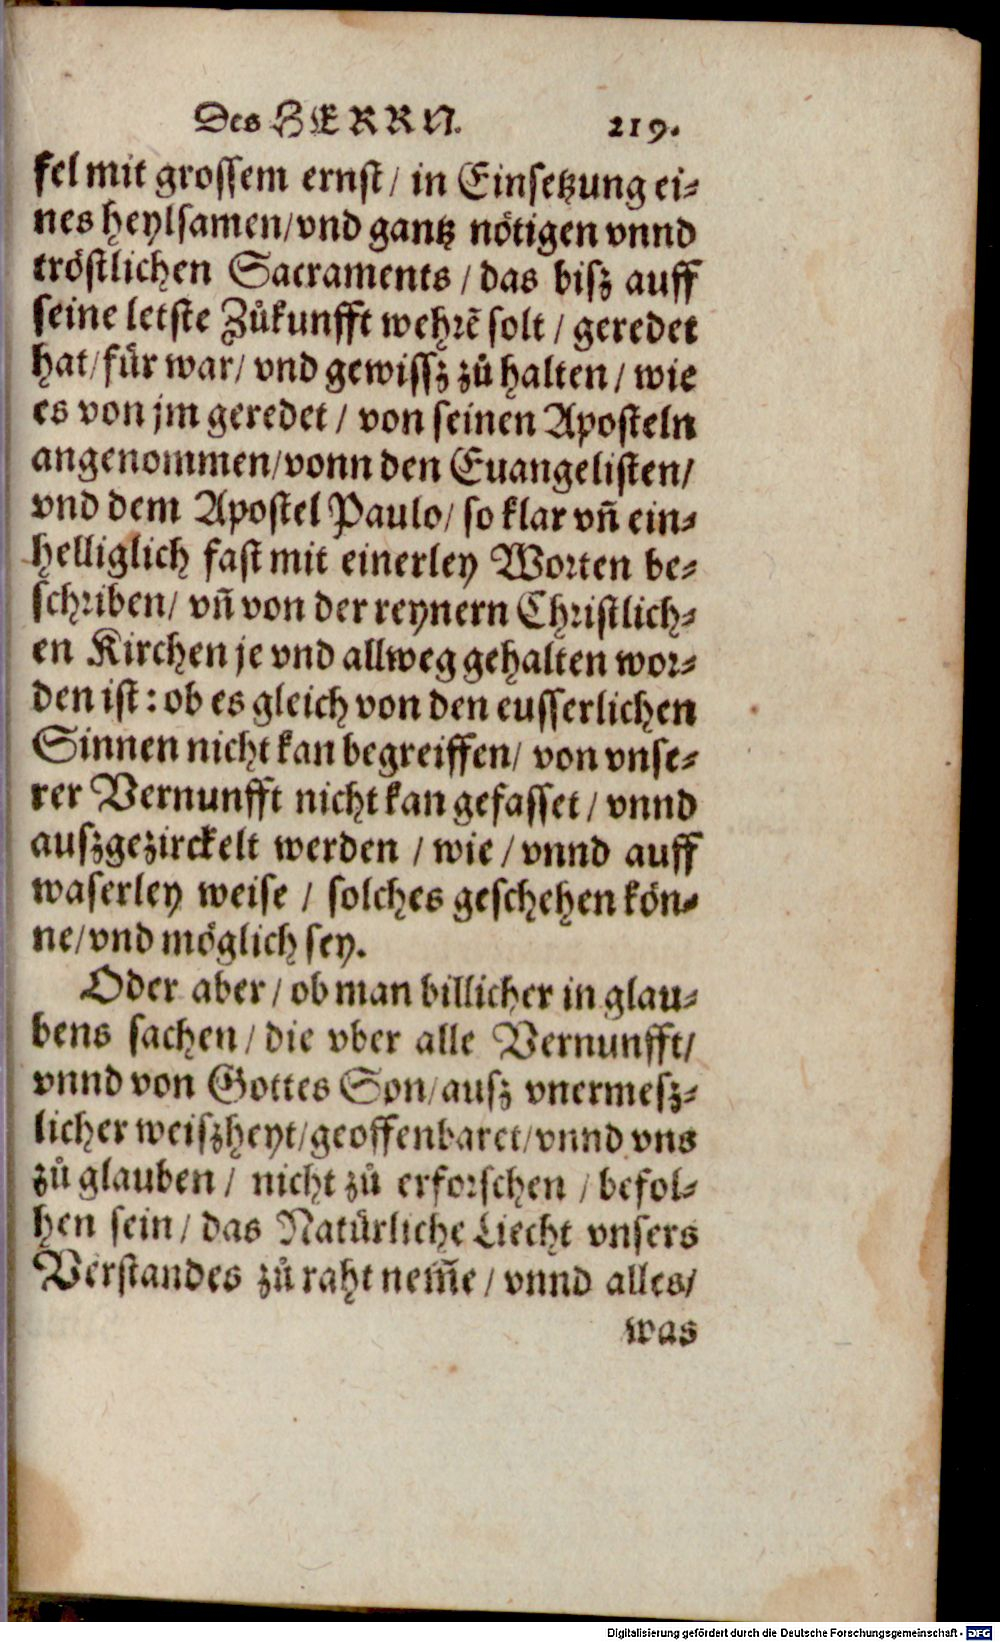 Des HERRN. 219.
fel mit grossem ernst / in Einsetzung ei-
nes heylsamen/vnd gantz nötigen vnnd
tröstlichen Sacraments / das bisz auff
seine letste Zůkunfft wehrẽ solt / geredet
hat/für war/ vnd gewissz zů halten / wie
es von jm geredet / von seinen Aposteln
angenommen/vonn den Euangelisten/
vnd dem Apostel Paulo/ so klar vñ ein-
helliglich fast mit einerley Worten be-
schriben/ vñ von der reynern Christlich-
en Kirchen je vnd allweg gehalten wor-
den ist: ob es gleich von den eusserlichen
Sinnen nicht kan begreiffen/ von vnse-
rer Vernunfft nicht kan gefasset / vnnd
auszgezirckelt werden / wie / vnnd auff
waserley weise / solches geschehen kön-
ne/vnd möglich sey.
Oder aber / ob man billicher in glau-
bens sachen / die vber alle Vernunfft/
vnnd von Gottes Son/ausz vnermesz-
licher weiszheyt/geoffenbaret/vnnd vns
zů glauben / nicht zů erforschen / befol-
hen sein / das Natürliche Liecht vnsers
Verstandes zů raht nem̃e / vnnd alles/
was
Digitalisierung gefördert durch die Deutsche Forschungsgemeinschaft - DFG